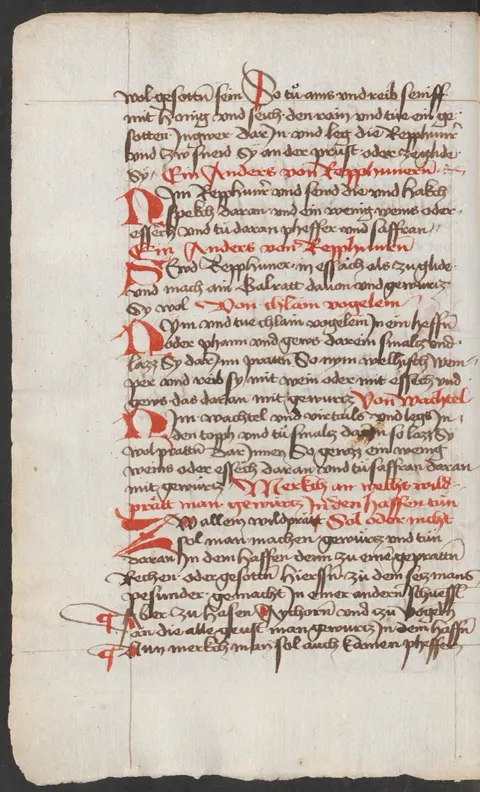 wol gesotn̄ sein So tů ains vnd reib seniff
mit honig vnd seich den rain vnd tue ein ge
sotten Ingwer dar In vnd leg die Repphunr̄
vnd zw sneid Sy an der prust oder zeglide
Sy Ein Anders von Repphunern
Nim Repphunr̄ vnd seud die vnd hakch
spekch daran vnd ein wenig weins oder
essech vnd tů daran pheffer vnd saffran
Ein Anders von Repphunen
Send Repphuner in essich als zu glide
vnd mach ain Salratt dauon vnd gewurtz
Sy wol Von chlain vogelein
Nym vnd tue chlain vogelein In ein heffn̄
oder phann vnd gews darein smaltz vnd
lazz Sy dar Inn pratn̄ So nym welhisch wein
per vnd reib sy mit wein oder mit essech vnd
gews das daran mit gewurtz Von wachtel
Nim wachtel vnd virtails vnd legs In
den toph vnd tů smaltz dar In so lazz Sy
wol prattn̄ Dar Innen So gewzz ein wenig
weins oder essech daran vnd tů saffran daran
mit gewurtz Merkch an welht wild
prätt man gewürtz In den haffen tün
Sol oder nicht
Zw allem wildprätt
sol man machen gewürtz vnd tün
daran In dem haffen denn zu eine gepratn̄
Rechen oder gesottn̄ hierssn̄ zu dem setzt mans
pesunder gemacht In einer andern schuessl
Aber zu hasen Aychorn̄ vnd zu vogeln
an die alle geust man gewurtz In dem haffn̄
Nun merkch man sol auch kainen pheffer